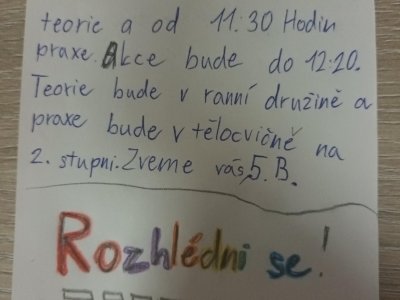 teorie a od 11:30 Hodin
praxe. Akce bude do 12:20.
Teorie bude v ranní družině a
praxe bude v tělocvičně na
2. stupni. Zveme vás, 5. B.
Rozhlédni se!